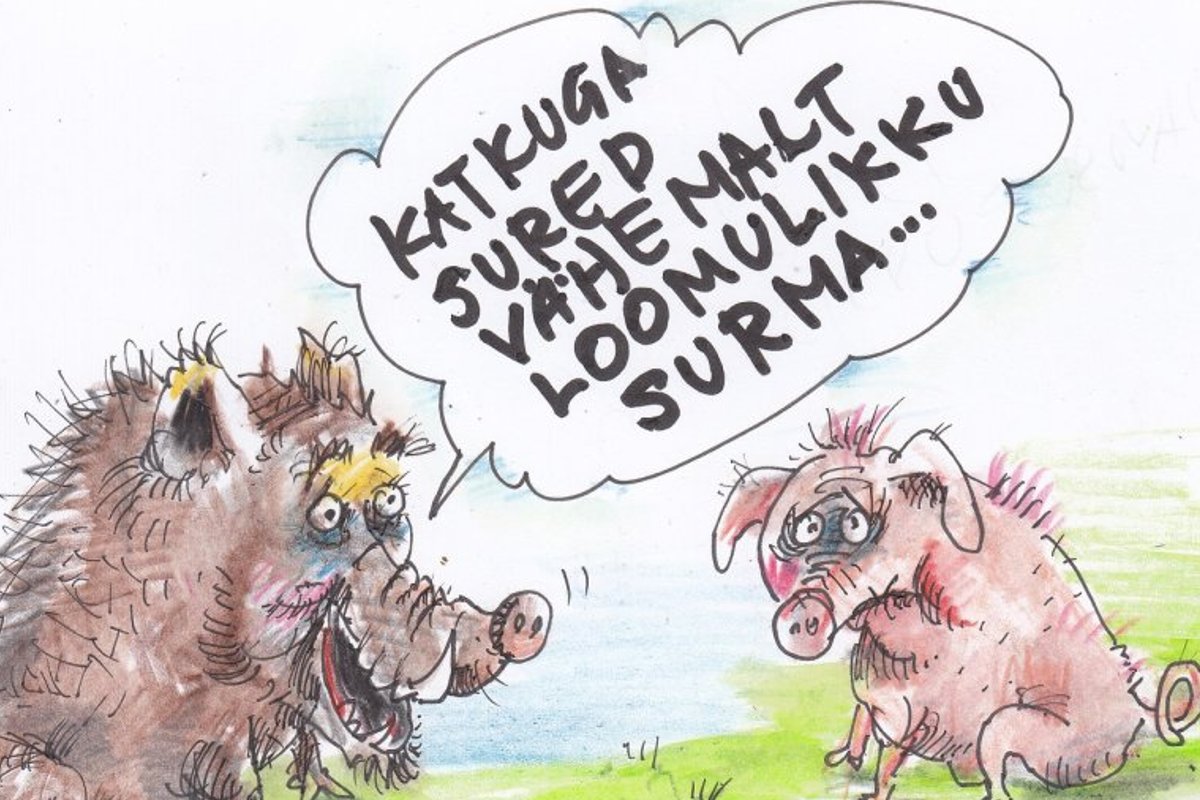 KATKUGA
SURED
VÄHEMALT
LOOMULIKKU
SURMA...